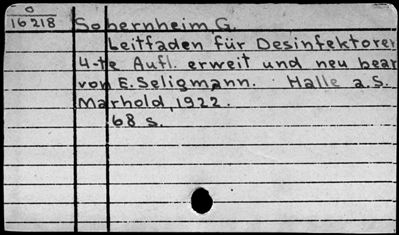 O
16218
Sobernheim, G.
Leitfaden für Desinfektoren
4-te Aufl. erweit und neu bear
von E. Seligmann. Halle a.S.
Marhold, 1922.
68 s.